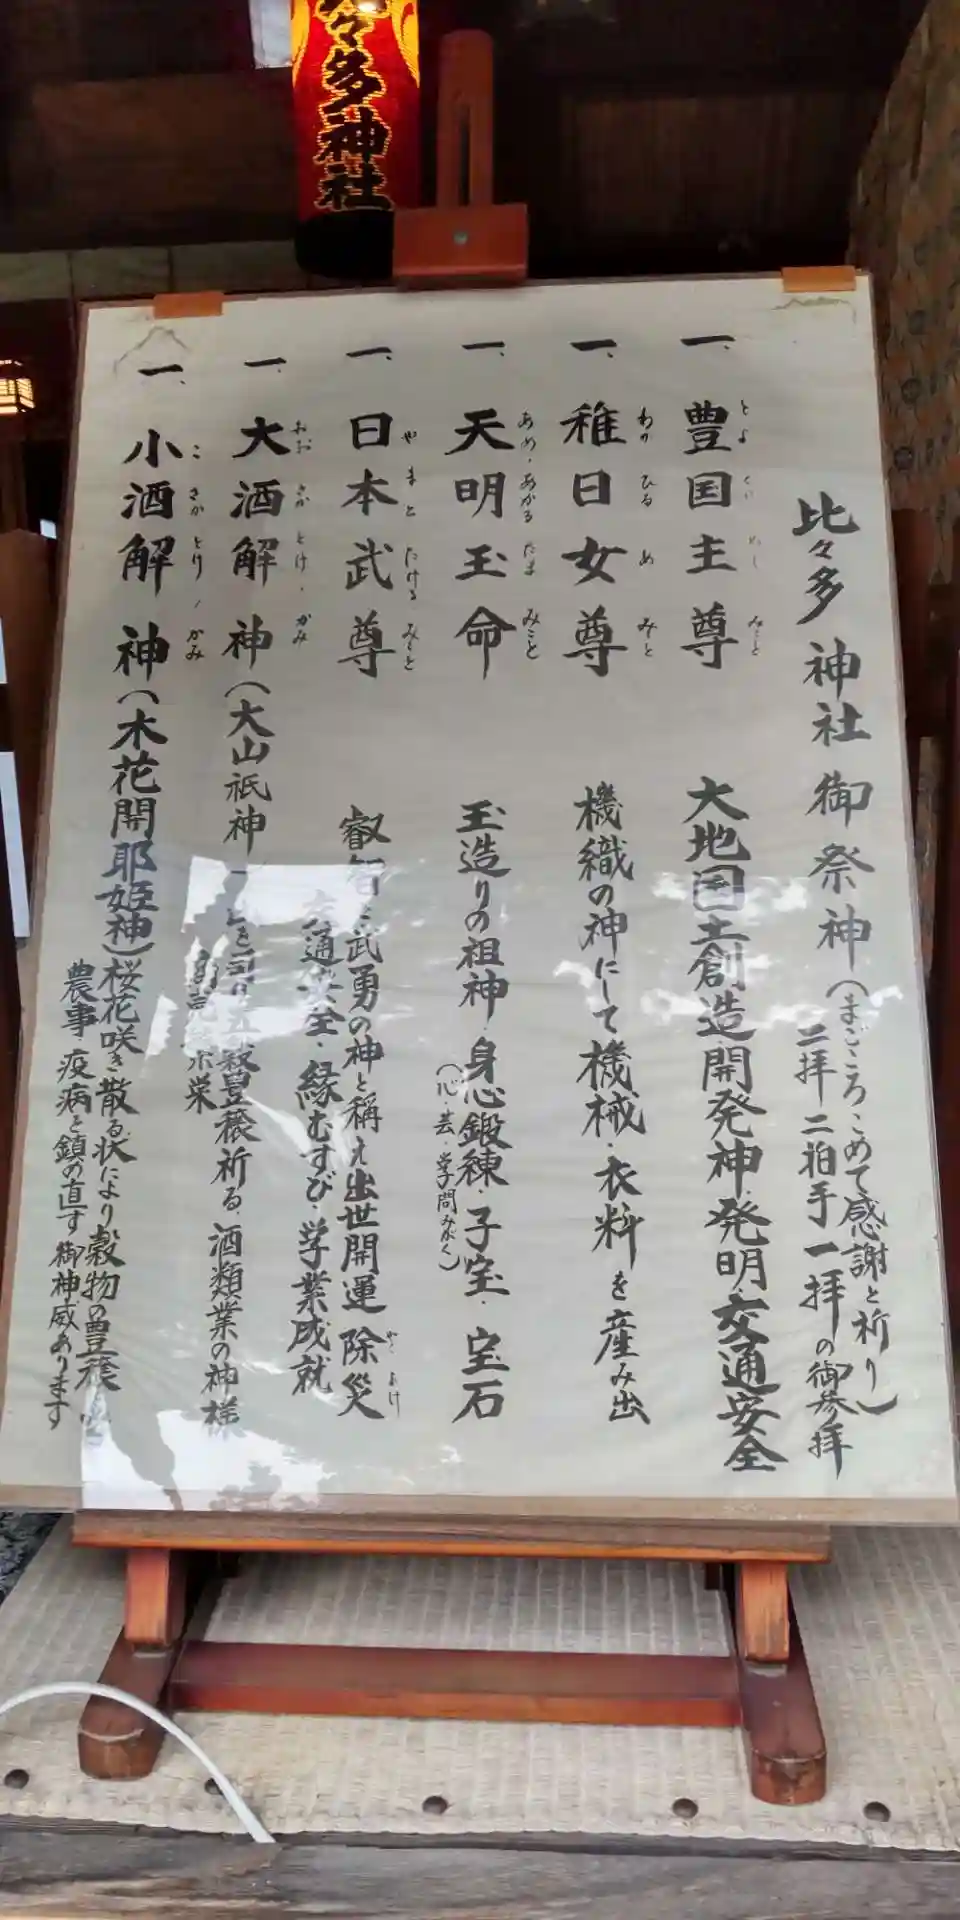 々多神社
比々多神社御祭神(まごころこめて感謝と祈り)
二拝二拍手一拝の御参拝
一、豊国主尊
大地国土創造・開発神・発明・交通安全
一、稚日女尊
わか ひる め みこと
機織の神にして機械・衣料を産み出
一、天明玉命
あめ・あかる たま みこと
玉造りの祖神・身心鍛練・子宝・宝石
(心・芸・学問みがく)
一、日本武尊
やま と たける みこと
武勇の神と称え出世開運除災
通安全・縁むすび・学業成就
一、大酒解神(大山祇神
おお さか とけ・かみ
穀豊穣祈る・酒類業の神様
栄
一、小酒解神(木花開耶姫神)桜花咲き散る状により穀物の豊穣
こ さか とけ・かみ
農事・疫病を鎮の直す御神威あります